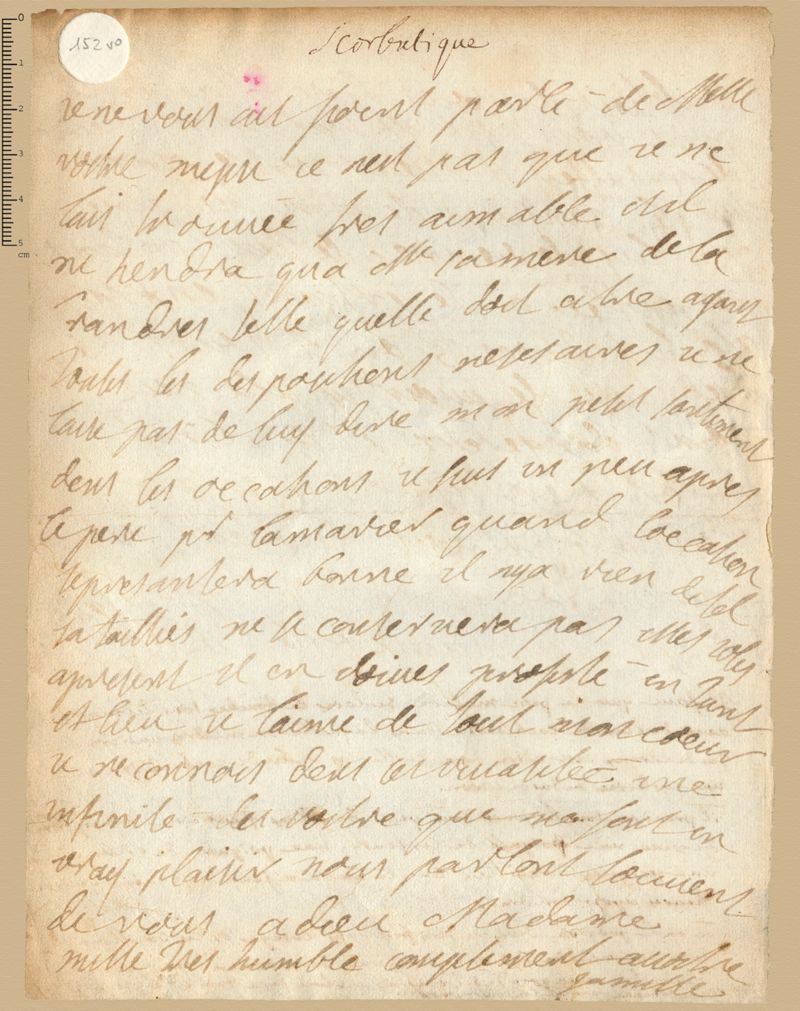 152 vo
Scorbutique
ie ne vous ait point parlé de Melle
vostre niepce ce nest pas que ie ne
laist trouvée tres aimable et il
ne tiendra qua Me sa mere de la
randres telle quelle doit estre ayant
toutes les despositions nesesaires ie ne
laise pas de luy dire mon petit santiment
dens les occasions ie suis un peu apres
le pere pr la marier quand loccasion
se presantera bonne il nya rien de tel
sa ne le conservera pas
apresent il en profité en tant
et lieu ie laime de tout mon coeur
ie ne connois dens une
infinité des vostre que me font un
vray plaisir nous parlons souvent
de vous adieu Madame
mille tres humble complement a vostre
famille